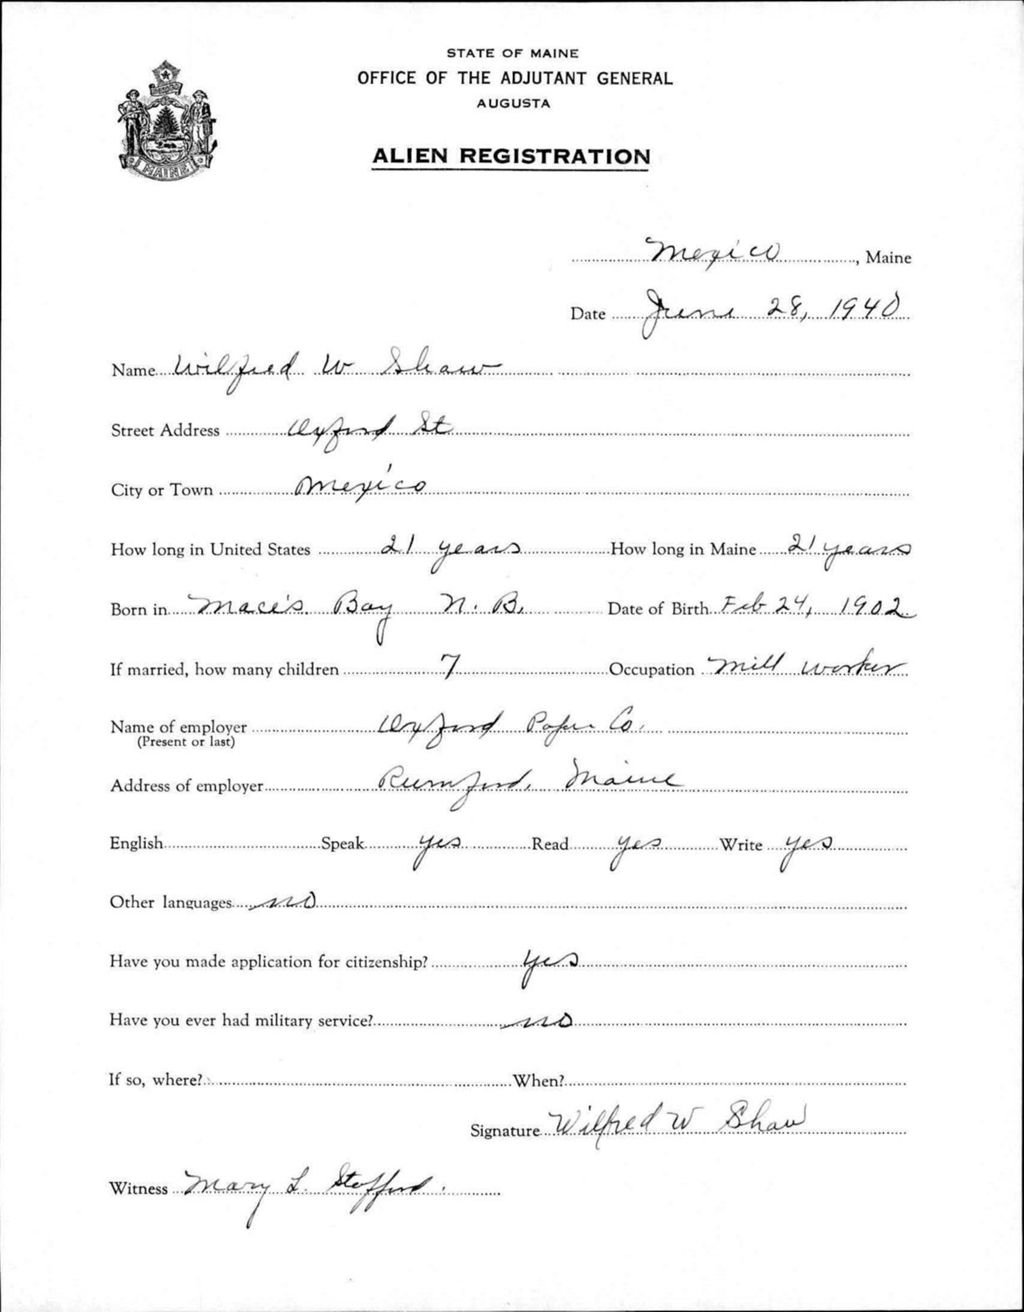 STATE OF MAINE
OFFICE OF THE ADJUTANT GENERAL
AUGUSTA
ALIEN REGISTRATION
MAINE
Mexico, Maine
Date June 28, 1940
Name Wilfred W Shaw
Street Address Oxford St
City or Town Mexico
How long in United States 21 years How long in Maine 21 years
Born in Mace's Bay N. B. Date of Birth Feb 24, 1902
If married, how many children 7 Occupation Mill worker
Name of employer Oxford Paper Co.
(Present or last)
Address of employer Rumford, Maine
English Speak yes Read yes Write yes
Other languages no
Have you made application for citizenship? yes
Have you ever had military service? no
If so, where? When?
Signature Wilfred W Shaw
Witness Mary L. Stafford.